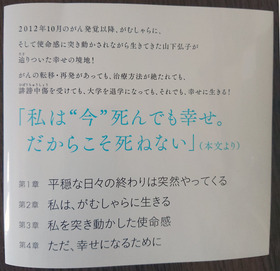 2012年10月のがん発覚以降、がむしゃらに、
そして使命感に突き動かされながら生きてきた山下弘子が
辿りついた幸せの境地!
がんの転移・再発があっても、治療方法が絶たれても、
誹謗中傷を受けても、大学を退学になっても、それでも、幸せに生きる!
「私は“今”死んでも幸せ。
だからこそ死ねない」(本文より)
第1章 平穏な日々の終わりは突然やってくる
第2章 私は、がむしゃらに生きる
第3章 私を突き動かした使命感
第4章 ただ、幸せになるために